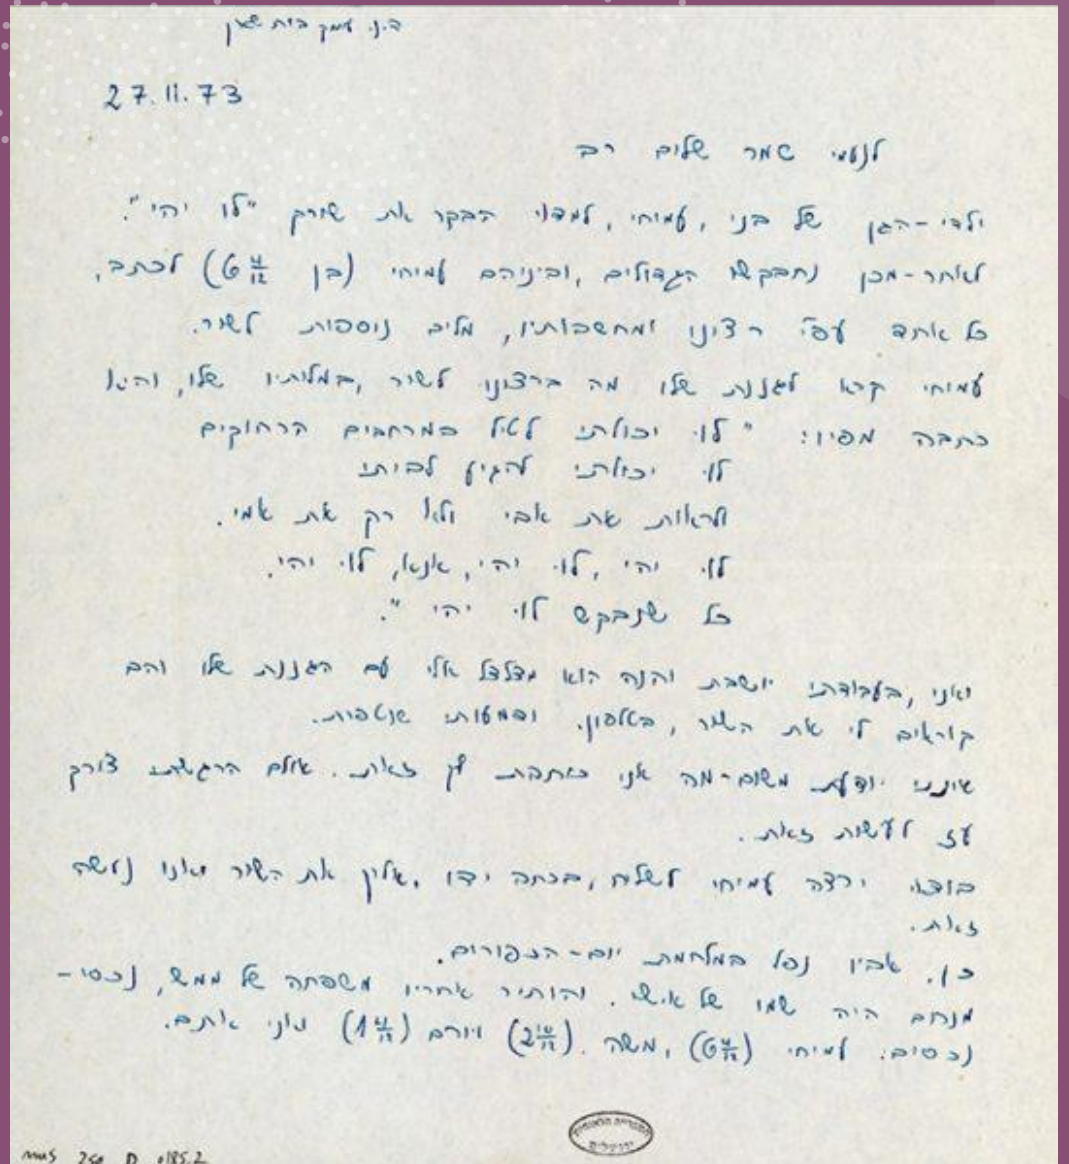 ד.נ. עמק בית שאן
27.11.73
לנעמי שמר שלום רב
ילדי-הגן של בני, עמיחי, למדו הבקר את שירך "לו יהי".
לאחר-מכן נתבקשו הגדולים, וביניהם עמיחי (בן 6 4/12) לכתב,
כל אחד עפ"י רצינו ומחשבותיו, מלים נוספות לשיר.
עמיחי קרא לגננת שלו מה ברצונו לשיר, במלותיו שלו, והיא
כתבה מפיו: "לו יכולתי לטיל במרחבים הרחוקים
לו יכולתי להגיע לביתי
ולראות את אבי ולא רק את אמי.
לו יהי, לו יהי, אנא, לו יהי.
כל שנבקש לו יהי".
ואני, בעבודתי יושבת והנה הוא מצלצל אלי עם הגננת שלו והם
קוראים לי את השיר, בטלפון. ודמעותי שוטפות.
אינני יודעת משום-מה אני כותבת לך זאת. אולם הרגשתי צורך
עז לעשות זאת.
בודאי ירצה עמיחי לשלוח, בכתב ידו, אליך את השיר ואנו נעשה
זאת.
כן. אביו נפל במלחמת יום-הכפורים.
מנחם היה שמו של אישי. והותיר אחריו משפחה של ממש, נכסי-
נכסים: עמיחי (6 4/12), משה (2 10/12) ויורם (1 4/12) ואני אתם.
MUS 250 D 0185.2